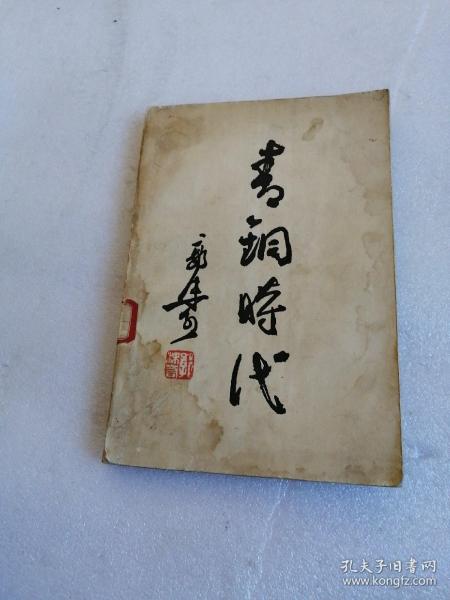 青銅時代
郭沫若
孔夫子旧书网
www.kongfz.com